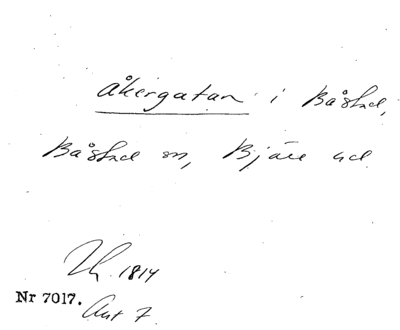 Åkergatan i Båstad,
Båstad sn, Bjäre hd.
1814
Nr 7017. Akt 7